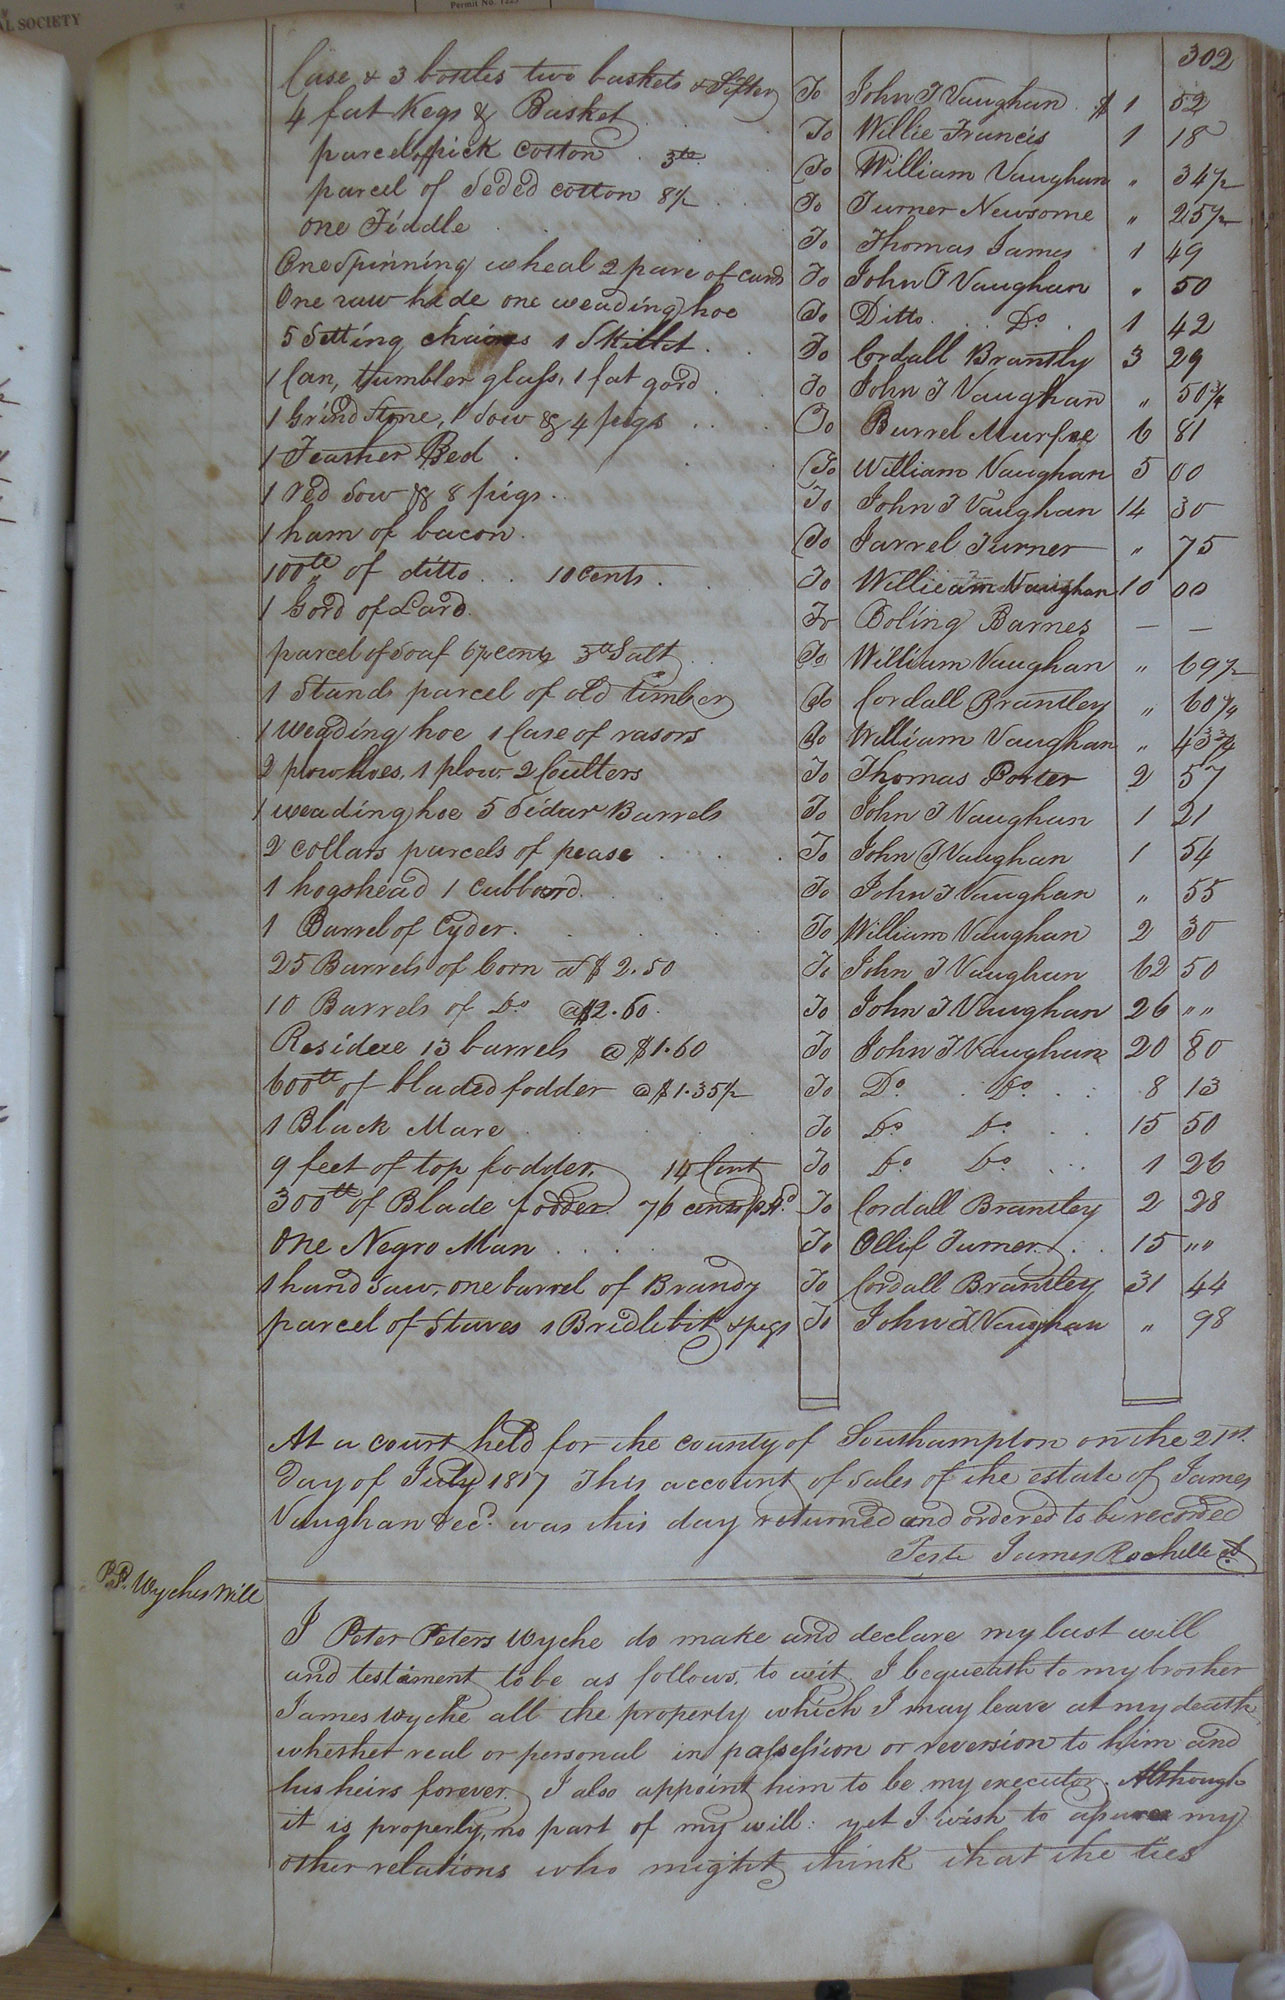 AL SOCIETY
Permit No. 1225
302
Case & 3 bottles two baskets & Sifter To John T Vaughan $ 1 52
4 fat Kegs & Basket To Willie Francis 1 18
parcel of pick cotton 3 lb To William Vaughan " 34 1/2
parcel of Seded cotton 8 1/2 To Turner Newsome " 25 1/2
One Fiddle To Thomas James 1 49
One Spinning wheal 2 pare of cards To John T Vaughan " 50
One raw hide one weading hoe To Ditto Do 1 42
5 Setting chairs 1 Skillet To Cordall Brantly 3 29
1 Can, tumbler glass, 1 fat gord To John T Vaughan " 50 3/4
1 Grind Stone, 1 Sow & 4 pigs To Burrel Murfee 6 81
1 Feather Bed To William Vaughan 5 00
1 red Sow & 8 pigs To John T Vaughan 14 30
1 ham of bacon To Jarrel Turner " 75
100 lb of ditto 10 cents To William Vaughan 10 00
1 Gord of Lard To Boling Barnes — —
parcel of Soaf 6 1/2 cents 3 lb Salt To William Vaughan " 69 1/2
1 Stand parcel of old timber To Cordall Brantley " 60 1/4
1 weading hoe 1 Case of rasors To William Vaughan " 43 3/4
2 plow hoes, 1 plow 2 Coulters To Thomas Porter 2 57
1 weading hoe 5 Sidar Barrels To John T Vaughan 1 21
2 collars parcels of pease To John T Vaughan 1 54
1 hogshead 1 Cubbord To John T Vaughan " 55
1 Barrel of Cyder To William Vaughan 2 30
25 Barrels of Corn at $ 2.50 To John T Vaughan 62 50
10 Barrels of Do @ $2.60 To John T Vaughan 26 " "
Residue 13 barrels @ $1.60 To John T Vaughan 20 80
600 lb of bladed fodder @ $1.35 1/2 To Do Do 8 13
1 Black Mare To Do Do 15 50
9 feet of top fodder, 14 Cent To Do Do 1 26
300 lb of Blade fodder 76 cents To Cordall Brantley 2 28
One Negro Man To Ollif Turner 15 " "
1 hand Saw, one barrel of Brandy To Cordall Brantley 31 44
parcel of Staves 1 Bridlebit & pegs To John T Vaughan " 98
At a court held for the county of Southampton on the 21st
day of July 1817 This account of Sales of the estate of James
Vaughan decd. was this day returned and ordered to be recorded
Teste James Rochelle
P.P. Wyches Will
I Peter Peters Wyche do make and declare my last will
and testament to be as follows, to wit. I bequeath to my brother
James Wyche all the property which I may leave at my death,
whether real or personal in possession or reversion to him and
his heirs forever. I also appoint him to be my executor. Although
it is properly, no part of my will: yet I wish to assure my
other relations who might think that the ties